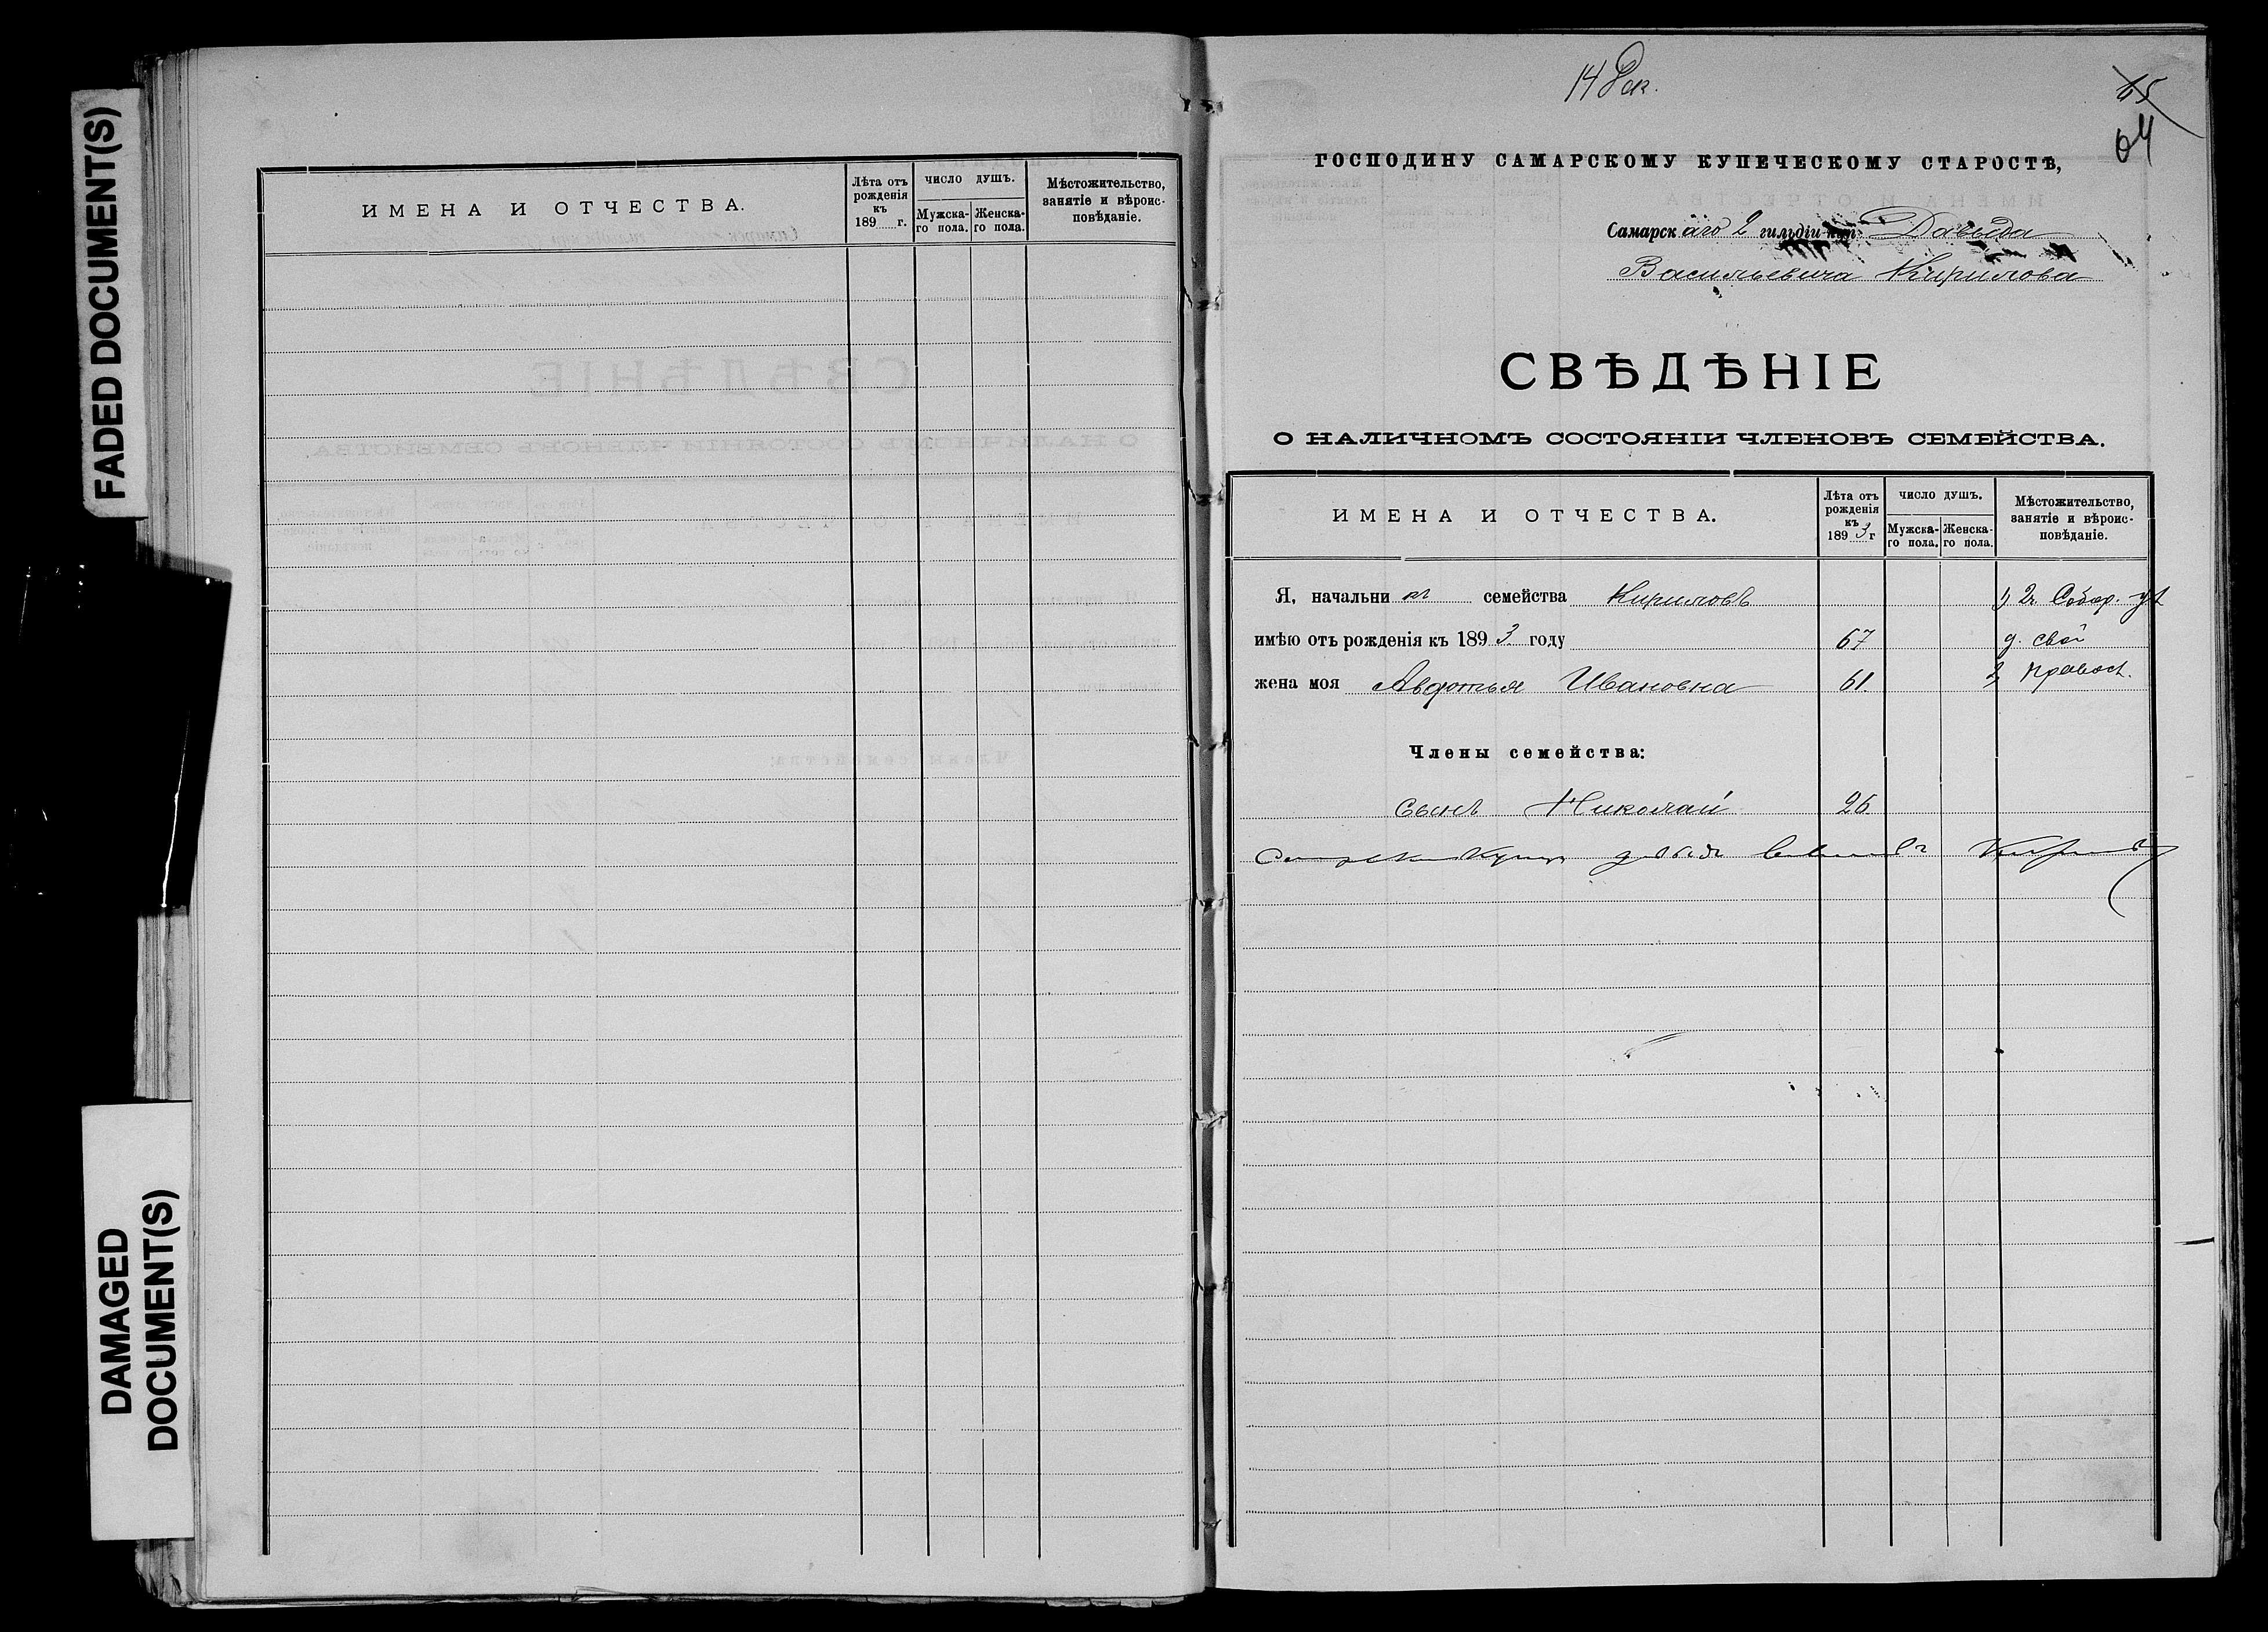 FADED DOCUMENT(S)
DAMAGED
DOCUMENT(S)
ИМЕНА И ОТЧЕСТВА.
Лѣта отъ
рожденія
къ
189 г.
число душъ.
Мужска-
го пола.
Женска-
го пола.
Мѣстожительство,
занятіе и вѣроис-
повѣданіе.
14 Дек.
65
64
ГОСПОДИНУ САМАРСКОМУ КУПЕЧЕСКОМУ СТАРОСТѢ,
Самарскаго 2 гильдіи куп Давыда
Васильевича Кирилова
СВѢДѢНІЕ
О НАЛИЧНОМЪ СОСТОЯНІИ ЧЛЕНОВЪ СЕМЕЙСТВА.
ИМЕНА И ОТЧЕСТВА.
Лѣта отъ
рожденія
къ
1893 г
число душъ.
Мужска-
го пола.
Женска-
го пола.
Мѣстожительство,
занятіе и вѣроис-
повѣданіе.
Я, начальникъ семейства Кириловъ 1) 2я Собор. ул
имѣю отъ рожденія къ 1893 году 67 д. свой
жена моя Авдотья Ивановна 61. 2) правосл.
Члены семейства:
сынъ Николай 26
купец Кирилов